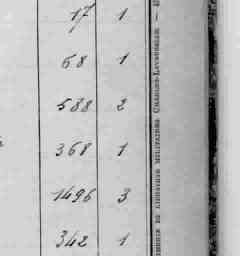 17 1
68 1
588 2
368 1
1496 3
342 1
LIBRAIRIE MILITAIRES CHARLES-LAVAUZELLE —